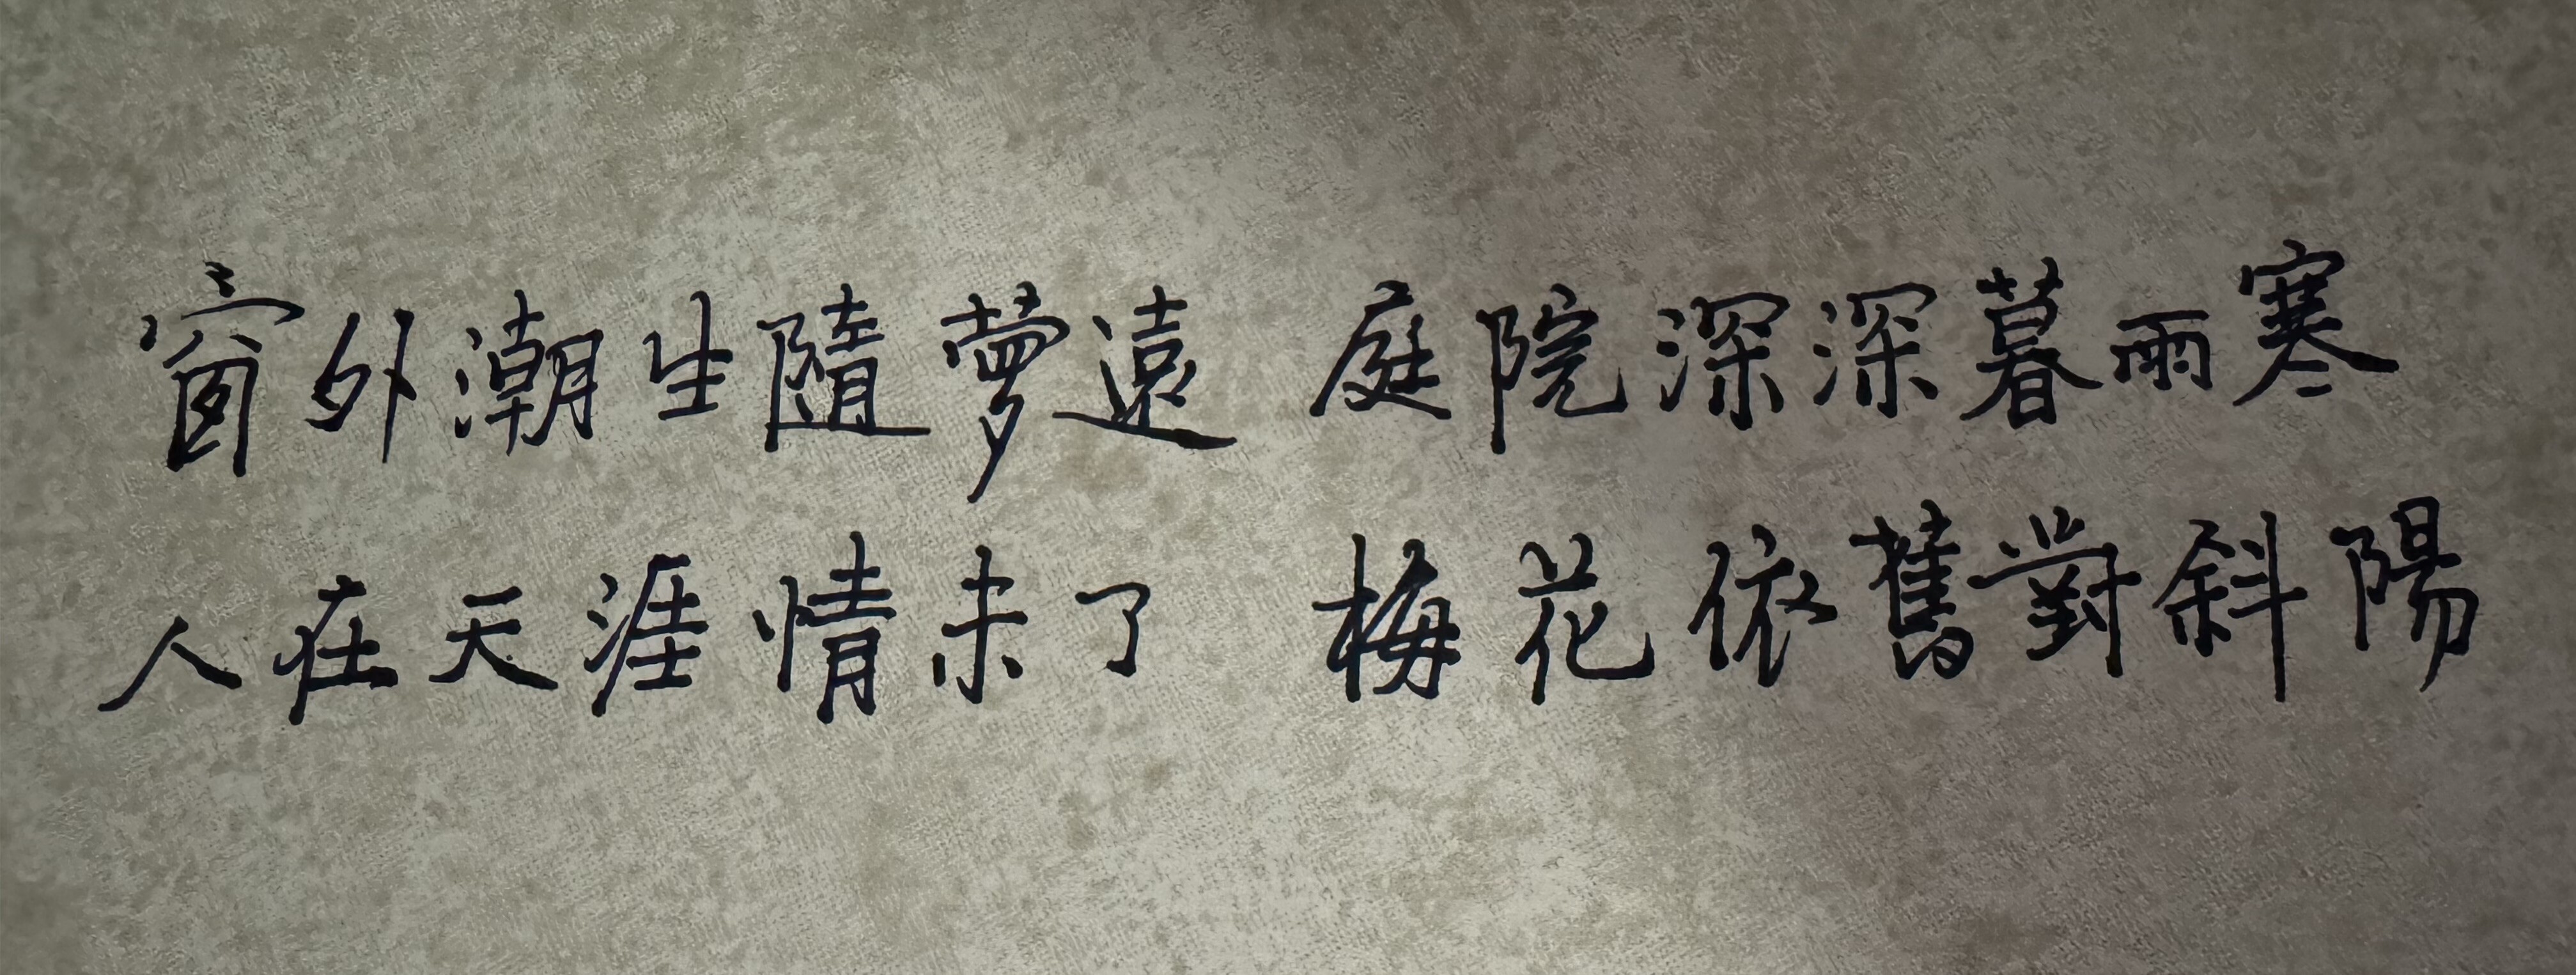 窗外潮生隨夢遠 庭院深深暮雨寒
人在天涯情未了 梅花依舊對斜陽